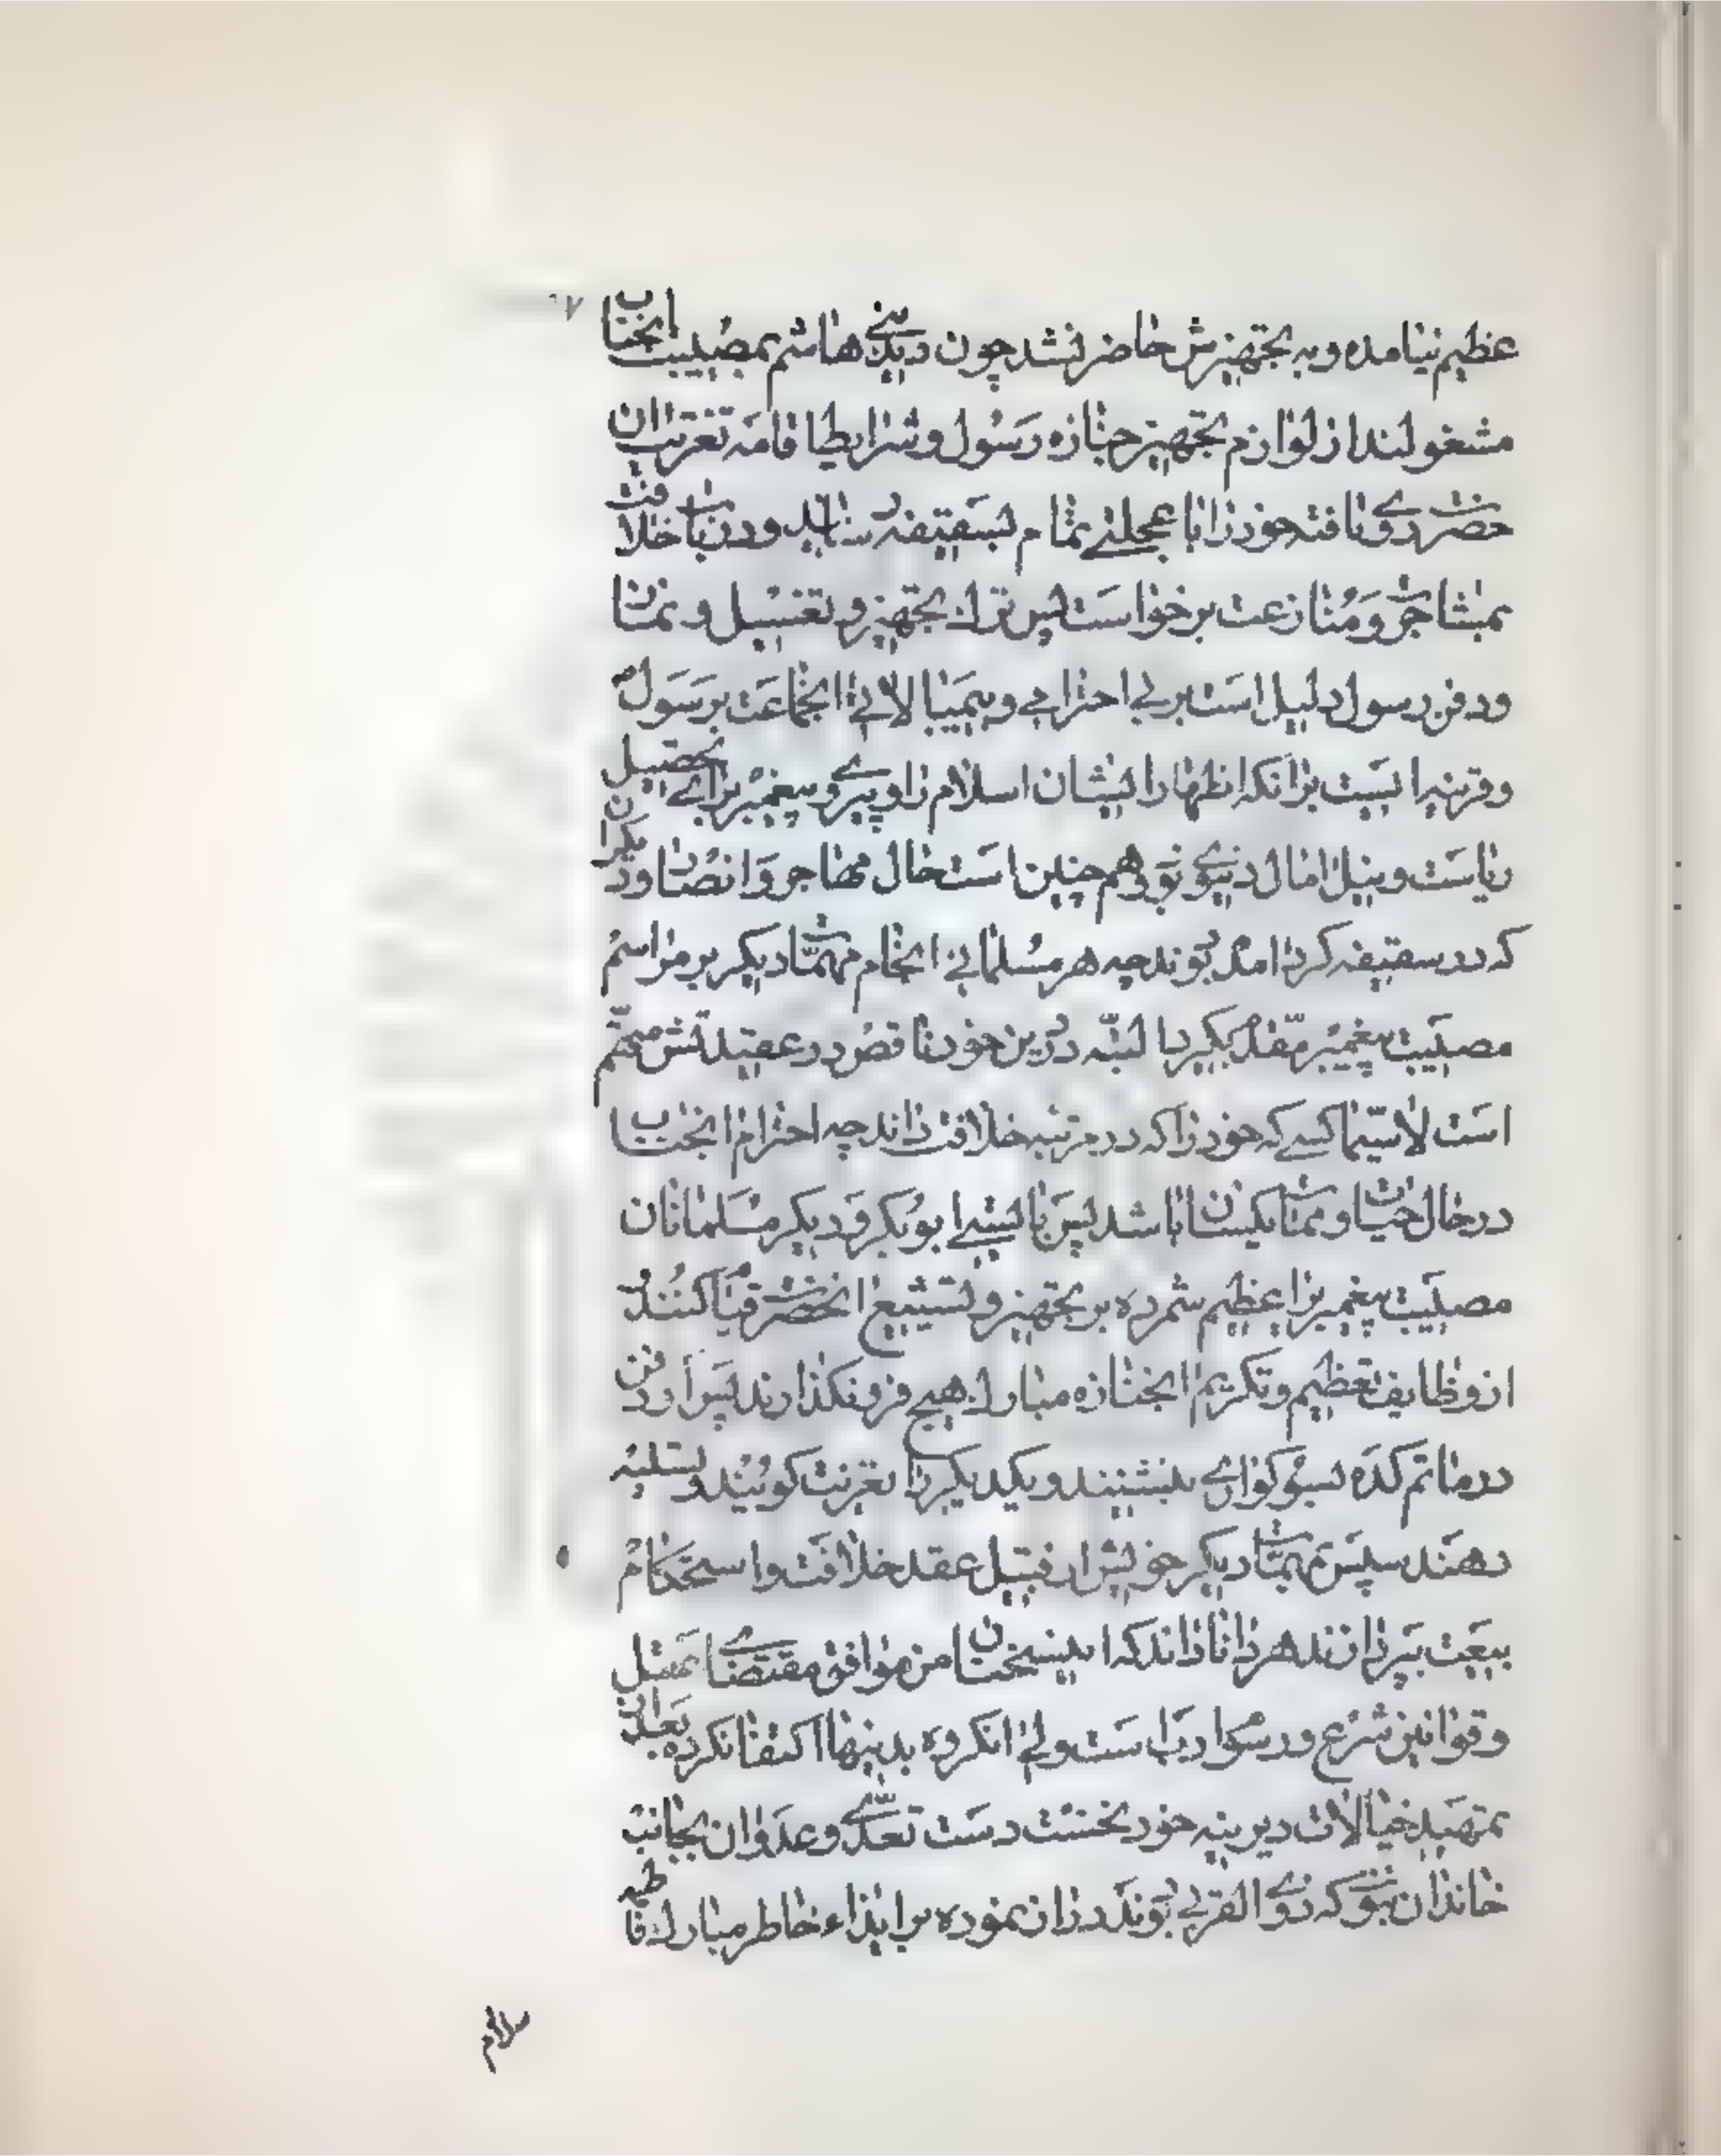 عظیم نیامده و به تجهیزش حاضر نشد چون دید بنی هاشم بمصیبت انجناب
مشغولند از لوازم تجهیز جنازه رسول و شرایط اقامه تعزیت ان
حضرت روی تافته خود را با عجلتی تمام بسقیفه رسانید و در باب خلافت
بمشاجرت و منازعت برخواست پس ترك تجهیز و تغسیل و نماز
و دفن رسول دلیل است بر بی احترامی و بیمبالاتی انجماعت برسول ص
و قرینه ایست برانکه اظهار ایشان اسلام را و پیروی پیغمبر برای تحصیل
ریاست و نیل امال دنیوی بود و هم چنین است حال مهاجر و انصار و دیکران
که در سقیفه کرد امده بودند چه هر مسلمانی انجام مهمات دیکر بر مراسم
مصیبت پیغمبر مقدم بکیرد البته در دین خود ناقص و در عقیدتش متهم
است لاسیما کسی که خود را که در مرتبه خلافت داند چه احترام انجناب
در حال حیات و ممات یکسان باشد پس بایستی ابوبکر و دیکر مسلمانان
مصیبت پیغمبر را عظیم شمرده بر تجهیز و تشییع انحضرت قیام کنند و
از وظایف تعظیم و تکریم انجنازه مبارك هیچ فرو نکذارند پس از دفن
در ماتم کده بسوکواری بنشینند و یکدیکر را تعزیت کویند و تسلیه
دهند سپس بمهمات دیکر خویش از قبیل عقد خلافت و استحکام
بیعت بپردازند هر دانا داند که این سخنان من موافق مقتضای عقل
و قوانین شرع و رسوم ادب است ولی انکروه بدینها اکتفا نکرده بعد از ان
بتمهید خیالات دیرینه خود نخست دست تعدی و عدوان بجانب
خاندان نبوت که ذوی القربی بودند دراز نموده بر ایذاء خاطر مبارك فاطمه
سلام